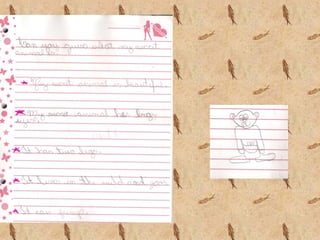 Can you guess what my secret
animal is...
My secret animal is beautiful.
My secret animal has huge
eyes.
It has two legs.
It lives in the wild and
It can jump.